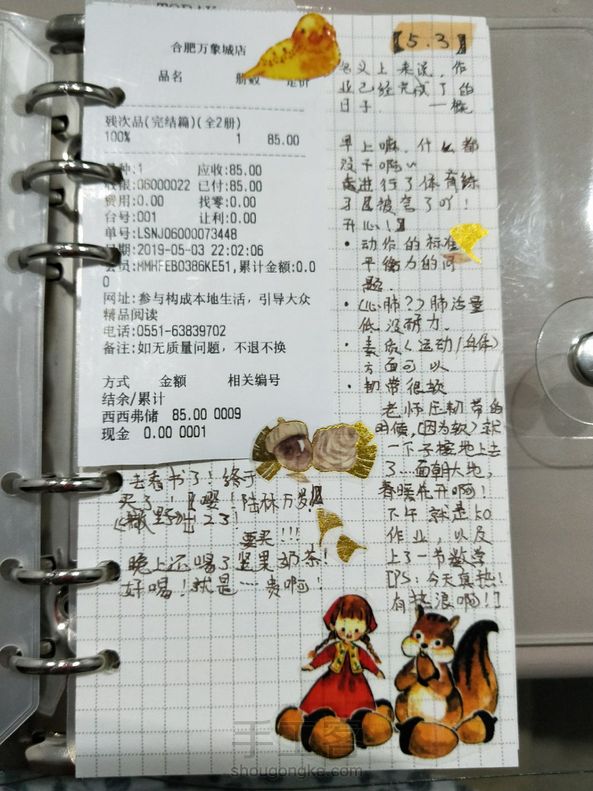 TODAY
合肥万象城店
品名 册数 定价
残次品(完结篇)(全2册)
100% 1 85.00
品种:1 应收:85.00
收银:06000022 已付:85.00
费用:0.00 找零:0.00
台号:001 让利:0.00
单号:LSNJ06000073448
日期:2019-05-03 22:02:06
会员:HMHFEB0386KE51,累计金额:0.0
0
网址:参与构成本地生活，引导大众
精品阅读
电话:0551-63839702
备注:如无质量问题，不退不换
方式 金额 相关编号
结余/累计
西西弗储 85.00 0009
现金 0.00 0001
【5.3】
名义上来说，作
业已经完成了的
日子。
早上嘛，什么都
没干啊~
进行了体育练
习被夸了吖！
开心！
·动作的标准
平衡力的问
题.
·(心肺?)肺活量
低,没耐力.
·素质(运动/身体)
方面可以
·韧带很软
老师压韧带的
时候,(因为软)就
一下子撞地上去
了…面朝大地,
春暖花开啊!
下午就是
作业，以及
上了一节数学
[PS:今天真热!
有热浪啊!]
去看书了！终于
买了！【嘤！陆林万岁】
《撒野》出23!
要买!!!
晚上还喝了坚果奶茶!
好喝！就是…贵啊!
手工客
shougongke.com